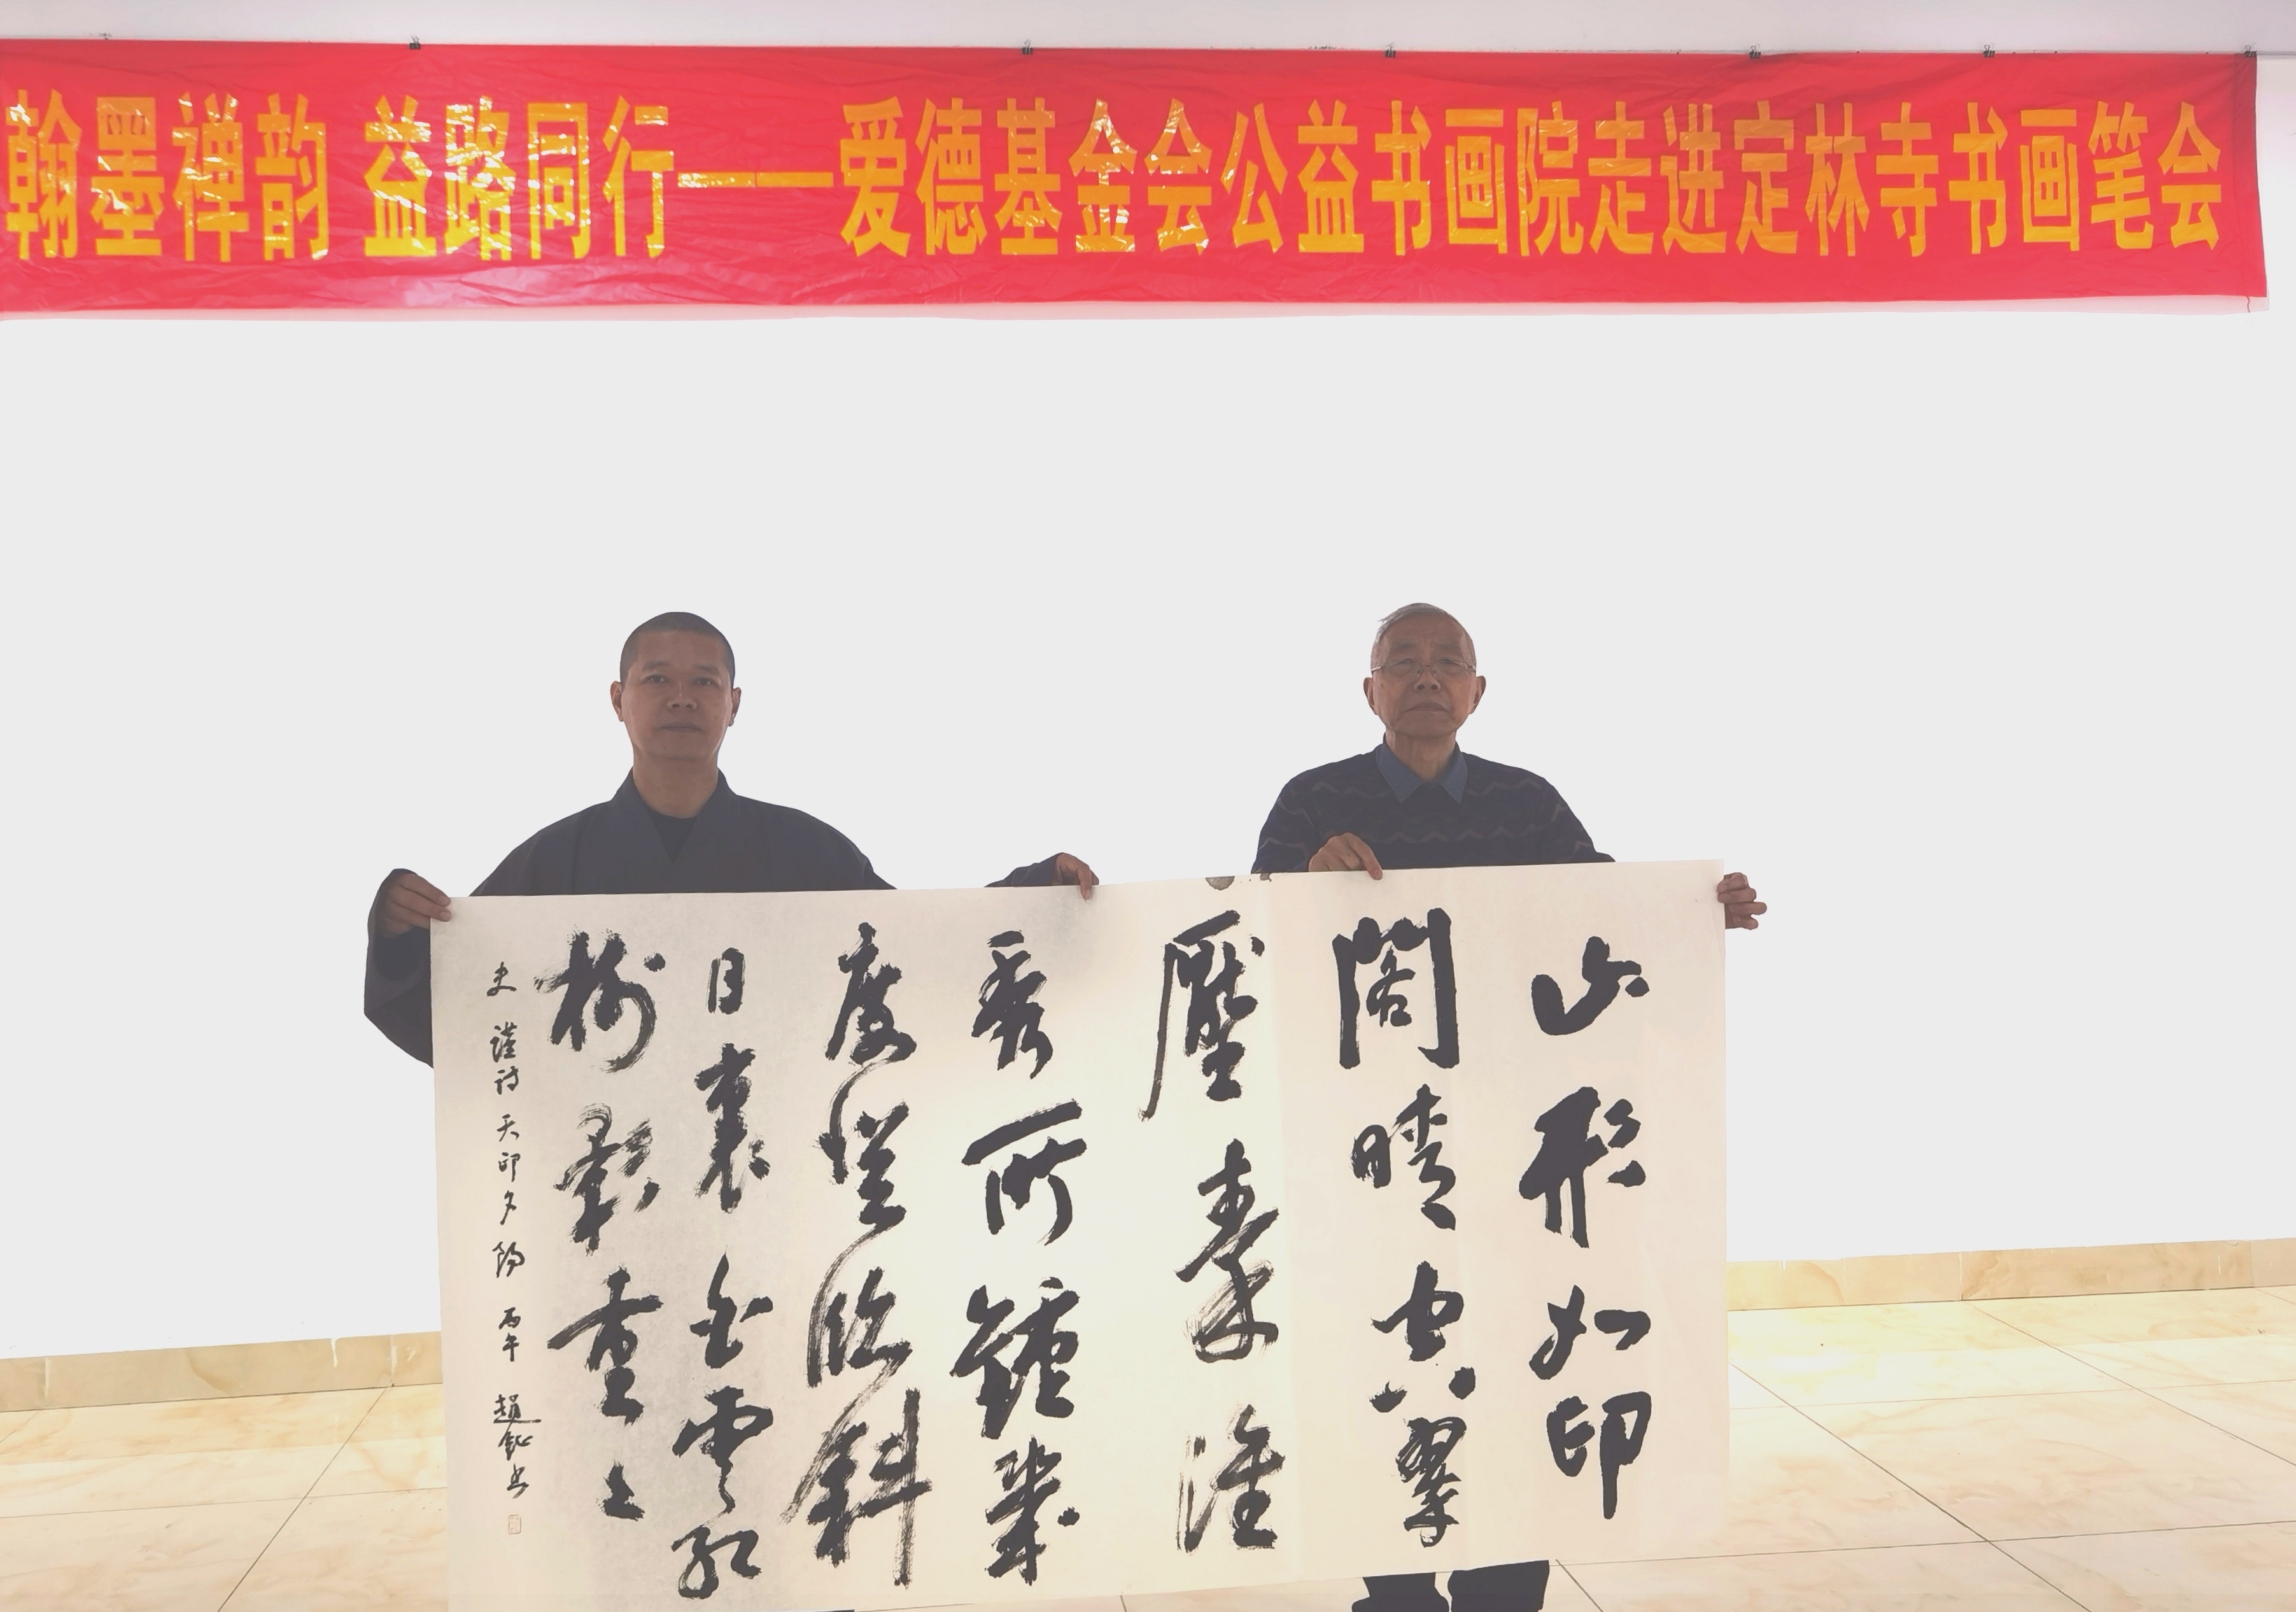 翰墨禅韵 益路同行——爱德基金会公益书画院走进定林寺书画笔会
山形如印
閣晴空翠
壓秦淮
秀所鐘幾
度登臨斜
日裏白雲紅
樹影重々
史謹詩天印夕陽 丙午 趙書